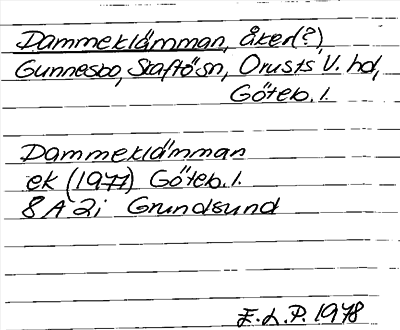 Dammeklämman, åker(?),
Gunnesbo, Skaftö sn, Orusts V. hd,
Göteb. l.
Dammeklämman
ek (1977) Göteb. l.
8A 2i Grundsund
E.L.P. 1978